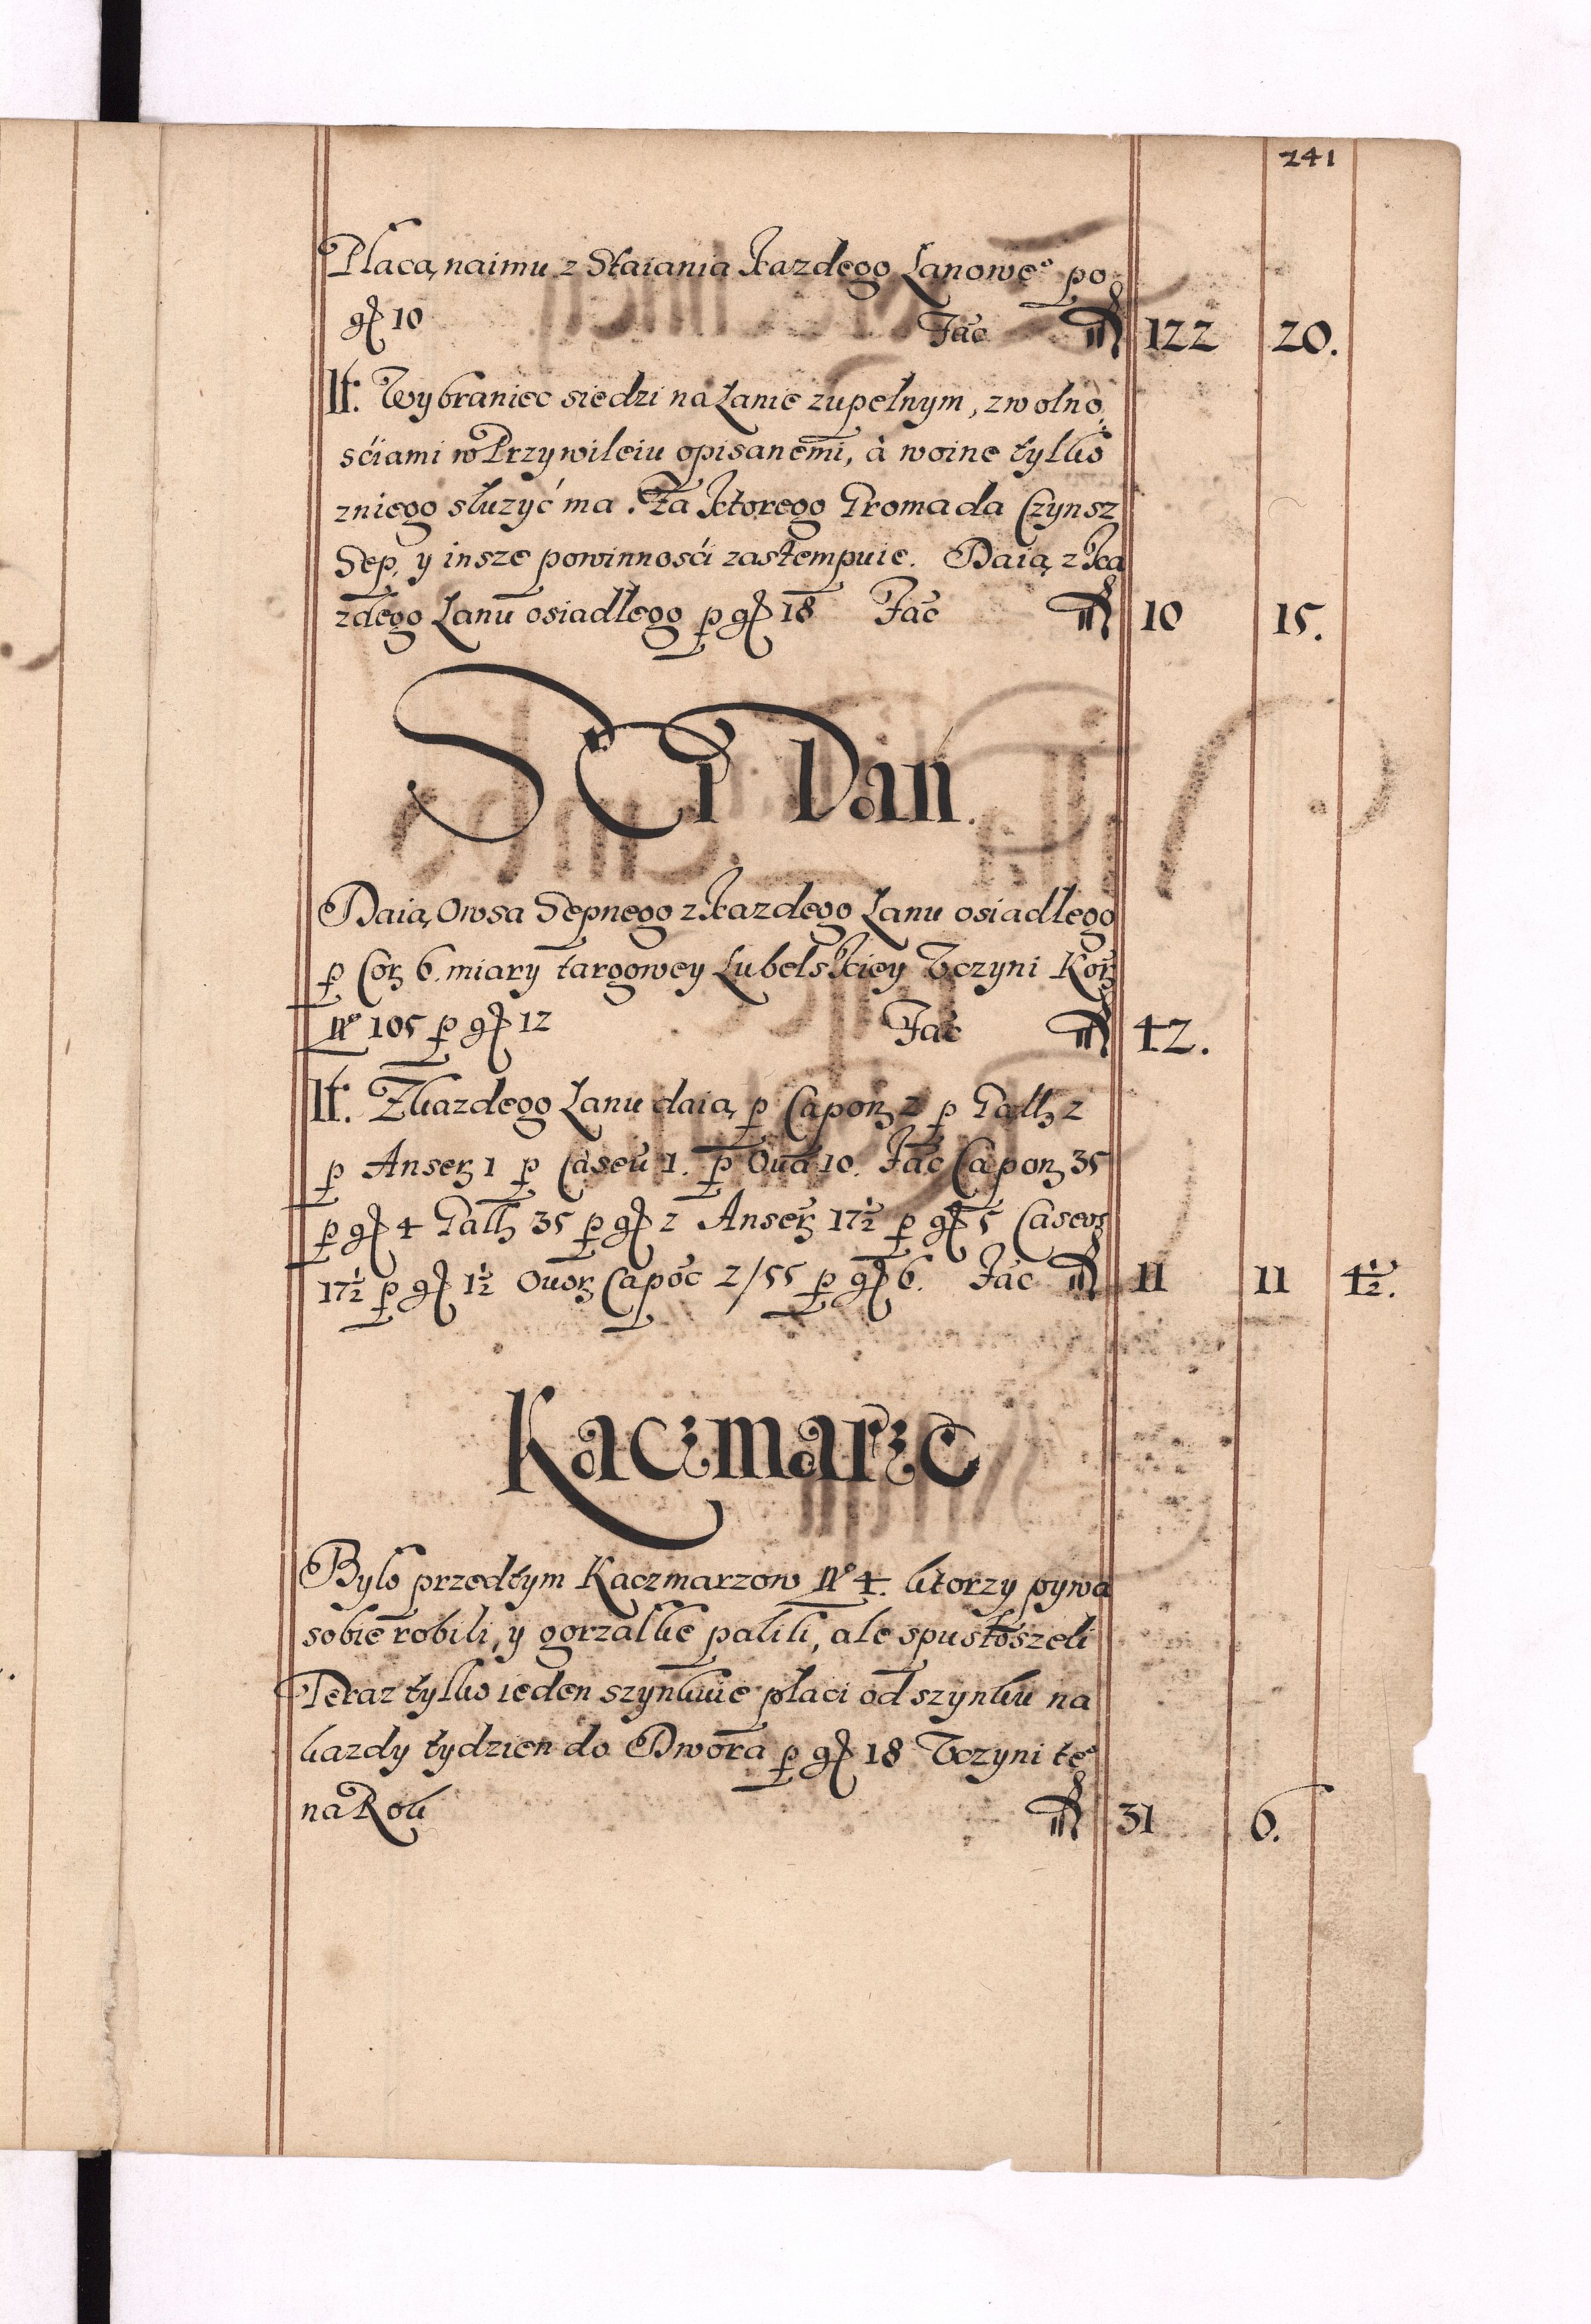 241
Płacą naimu z Staiania kazdego Lanowe° po
gʒ 10 Fac fl 122 20.
It. Wybraniec siedzi na Lanie zupełnym, z wolno
sciami w Przywileiu opisanemi, à woine tylko
z niego słuzyć ma. Za ktorego Gromada Czynsz
Sep, y insze powinnosći zastempuie. Daią z ka
zdego Lanu osiadłego p gʒ 18 Fac fl 10 15.
Sep i Dan.
Daią Owsa Sepnego z kazdego Lanu osiadłego
p Corʒ 6. miary targowey Lubelskiey Vczyni Korʒ
N° 105 p gʒ 12 Fac fl 42.
It. Z kazdego Lanu daią p Caponʒ 2 p Gallʒ 2
p Anserʒ 1 p Caseũ 1. p Oua 10. Fac Caponʒ 35
p gʒ 4 Gallʒ 35 p gʒ 2 Anserʒ 17½ p gʒ 5 Caseorʒ
17½ p gʒ 1½ Ouorʒ Capoc 2/55 p gʒ 6. Fac fl 11 11 4½.
Kaczmarze
Bylo przedtym Kaczmarzow N° 4. ktorzy pywa
sobie robili, y gorzalke palili, ale spustoszeli
Teraz tylko ieden szynkuie płaci od szynku na
kazdy tydzien do Dwora p gʒ 18 Vczyni te°
na Rok fl 31 6.